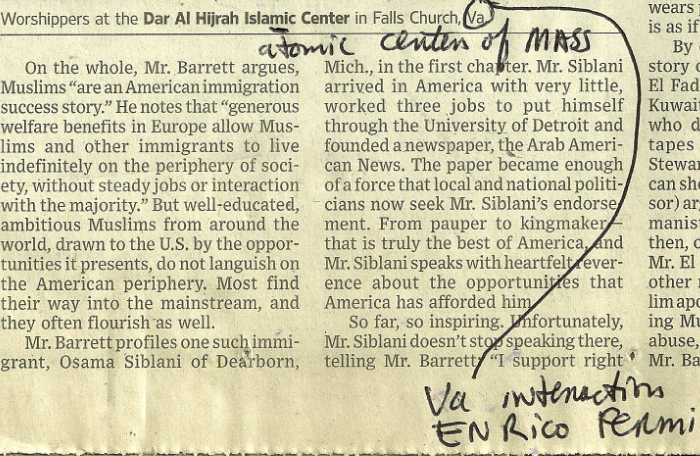 Worshippers at the Dar Al Hijrah Islamic Center in Falls Church, Va.
atomic center of MASS
On the whole, Mr. Barrett argues,
Muslims “are an American immigration
success story.” He notes that “generous
welfare benefits in Europe allow Mus-
lims and other immigrants to live
indefinitely on the periphery of soci-
ety, without steady jobs or interaction
with the majority.” But well-educated,
ambitious Muslims from around the
world, drawn to the U.S. by the oppor-
tunities it presents, do not languish on
the American periphery. Most find
their way into the mainstream, and
they often flourish as well.
Mr. Barrett profiles one such immi-
grant, Osama Siblani of Dearborn,
Mich., in the first chapter. Mr. Siblani
arrived in America with very little,
worked three jobs to put himself
through the University of Detroit and
founded a newspaper, the Arab Ameri-
can News. The paper became enough
of a force that local and national politi-
cians now seek Mr. Siblani’s endorse-
ment. From pauper to kingmaker—
that is truly the best of America, and
Mr. Siblani speaks with heartfelt rever-
ence about the opportunities that
America has afforded him.
So far, so inspiring. Unfortunately,
Mr. Siblani doesn’t stop speaking there,
telling Mr. Barrett: “I support right
wears
is as if
By
story
El Fad
Kuwai
who d
tapes
Stewa
can sh
sor) ar
manis
then,
Mr. El
other
lim apo
ing Mu
abuse,
Mr. Ba
Va interaction
ENRico FERMI